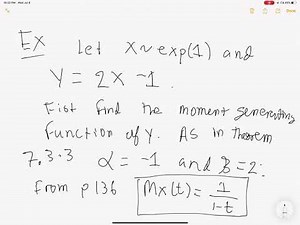 Ex Let X~exp(1) and
Y = 2X -1.
Fist find the moment generating
function of Y. As in theorem
7.3.3 α = -1 and B = 2:
From p136 Mx(t) = 1/1-t